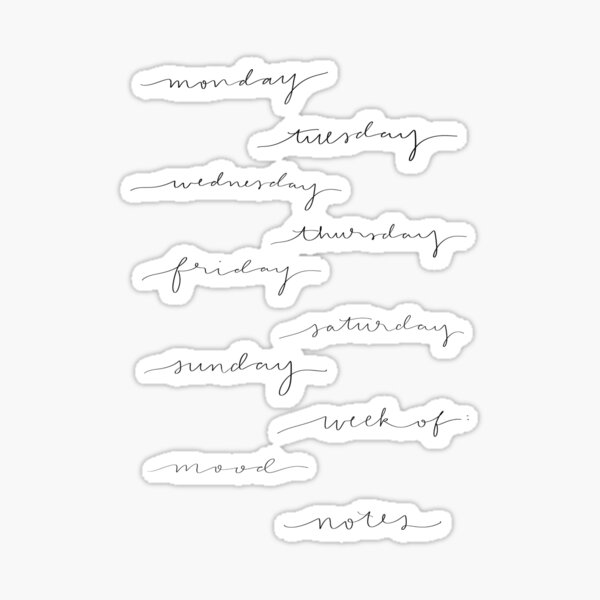 monday
tuesday
wednesday
thursday
friday
saturday
sunday
week of:
mood
notes